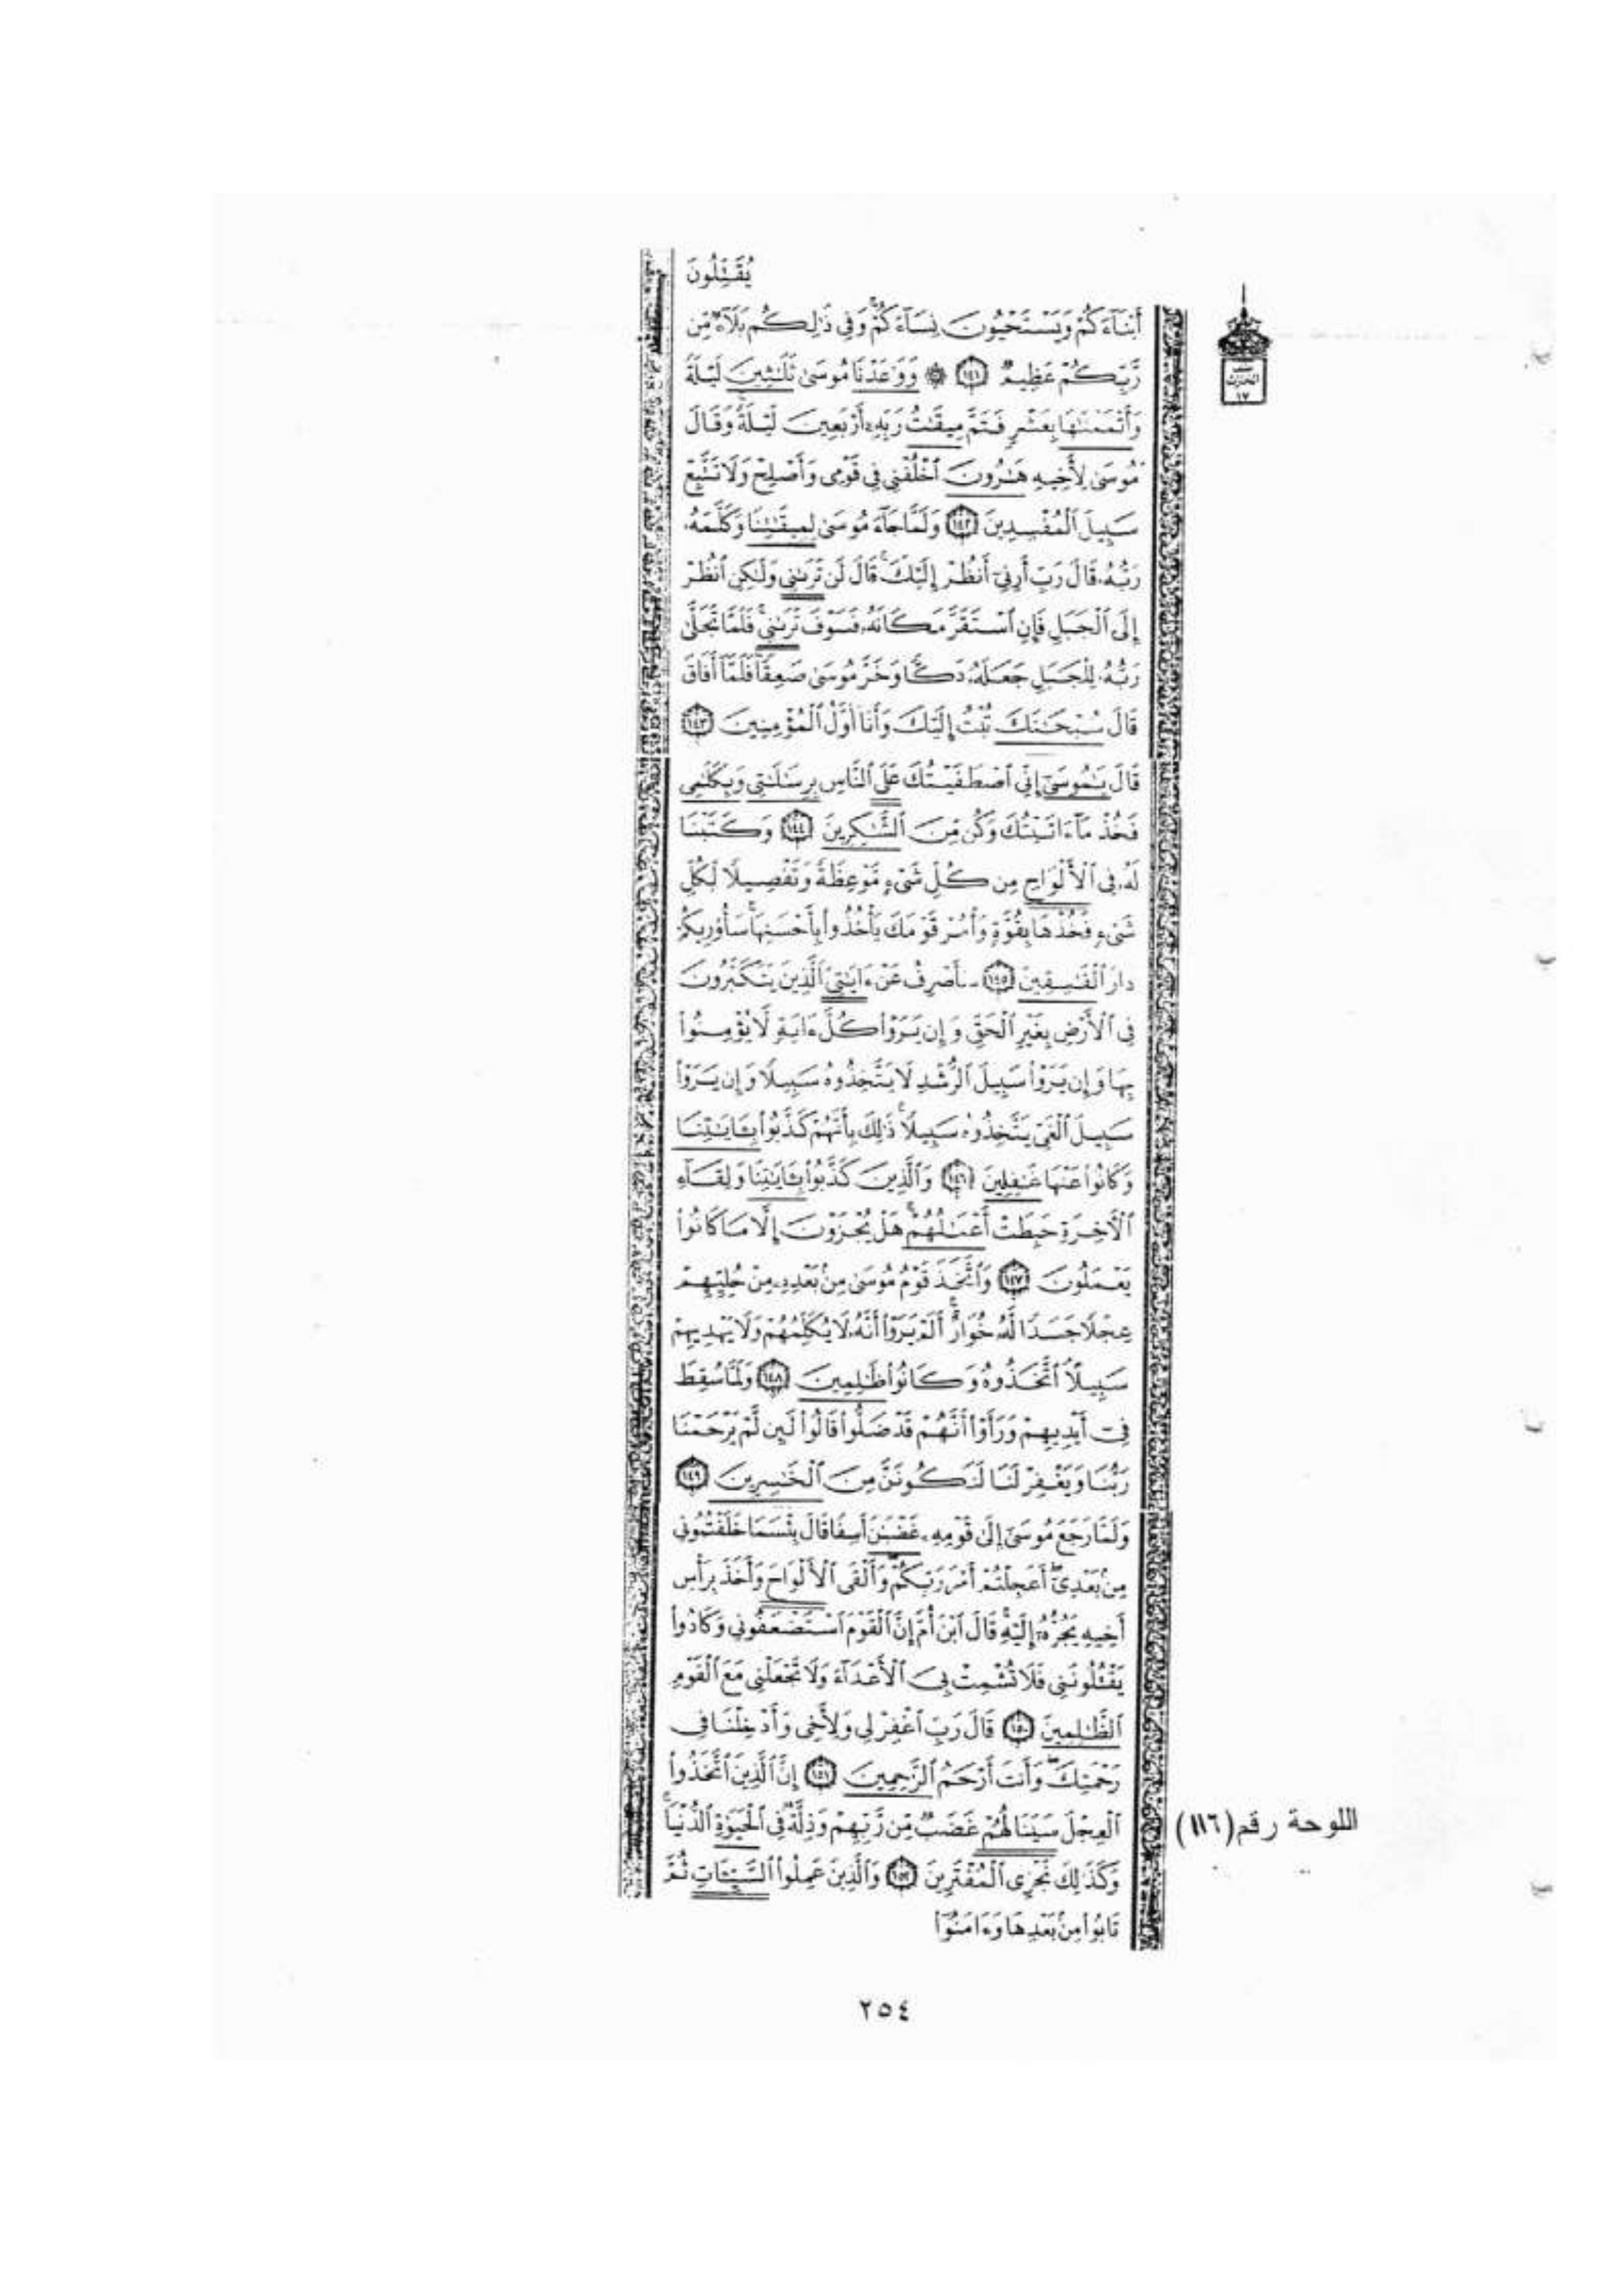 يُقَتِّلُونَ
أَبْنَآءَكُمْ وَيَسْتَحْيُونَ نِسَآءَكُمْ ۚ وَفِى ذَٰلِكُم بَلَآءٌ مِّن
رَّبِّكُمْ عَظِيمٌ ١٤١ ۞ وَوَٰعَدْنَا مُوسَىٰ ثَلَٰثِينَ لَيْلَةً
نصف
الحزب
١٧
وَأَتْمَمْنَٰهَا بِعَشْرٍ فَتَمَّ مِيقَٰتُ رَبِّهِۦٓ أَرْبَعِينَ لَيْلَةً ۚ وَقَالَ
مُوسَىٰ لِأَخِيهِ هَٰرُونَ ٱخْلُفْنِى فِى قَوْمِى وَأَصْلِحْ وَلَا تَتَّبِعْ
سَبِيلَ ٱلْمُفْسِدِينَ ١٤٢ وَلَمَّا جَآءَ مُوسَىٰ لِمِيقَٰتِنَا وَكَلَّمَهُۥ
رَبُّهُۥ قَالَ رَبِّ أَرِنِىٓ أَنظُرْ إِلَيْكَ ۚ قَالَ لَن تَرَىٰنِى وَلَٰكِنِ ٱنظُرْ
إِلَى ٱلْجَبَلِ فَإِنِ ٱسْتَقَرَّ مَكَانَهُۥ فَسَوْفَ تَرَىٰنِى ۚ فَلَمَّا تَجَلَّىٰ
رَبُّهُۥ لِلْجَبَلِ جَعَلَهُۥ دَكًّا وَخَرَّ مُوسَىٰ صَعِقًا ۚ فَلَمَّآ أَفَاقَ
قَالَ سُبْحَٰنَكَ تُبْتُ إِلَيْكَ وَأَنَا۠ أَوَّلُ ٱلْمُؤْمِنِينَ ١٤٣
قَالَ يَٰمُوسَىٰٓ إِنِّى ٱصْطَفَيْتُكَ عَلَى ٱلنَّاسِ بِرِسَٰلَٰتِى وَبِكَلَٰمِى
فَخُذْ مَآ ءَاتَيْتُكَ وَكُن مِّنَ ٱلشَّٰكِرِينَ ١٤٤ وَكَتَبْنَا
لَهُۥ فِى ٱلْأَلْوَاحِ مِن كُلِّ شَىْءٍ مَّوْعِظَةً وَتَفْصِيلًا لِّكُلِّ
شَىْءٍ فَخُذْهَا بِقُوَّةٍ وَأْمُرْ قَوْمَكَ يَأْخُذُوا۟ بِأَحْسَنِهَا ۚ سَأُو۟رِيكُمْ
دَارَ ٱلْفَٰسِقِينَ ١٤٥ سَأَصْرِفُ عَنْ ءَايَٰتِىَ ٱلَّذِينَ يَتَكَبَّرُونَ
فِى ٱلْأَرْضِ بِغَيْرِ ٱلْحَقِّ وَإِن يَرَوْا۟ كُلَّ ءَايَةٍ لَّا يُؤْمِنُوا۟
بِهَا وَإِن يَرَوْا۟ سَبِيلَ ٱلرُّشْدِ لَا يَتَّخِذُوهُ سَبِيلًا وَإِن يَرَوْا۟
سَبِيلَ ٱلْغَىِّ يَتَّخِذُوهُ سَبِيلًا ۚ ذَٰلِكَ بِأَنَّهُمْ كَذَّبُوا۟ بِـَٔايَٰتِنَا
وَكَانُوا۟ عَنْهَا غَٰفِلِينَ ١٤٦ وَٱلَّذِينَ كَذَّبُوا۟ بِـَٔايَٰتِنَا وَلِقَآءِ
ٱلْـَٔاخِرَةِ حَبِطَتْ أَعْمَٰلُهُمْ ۚ هَلْ يُجْزَوْنَ إِلَّا مَا كَانُوا۟
يَعْمَلُونَ ١٤٧ وَٱتَّخَذَ قَوْمُ مُوسَىٰ مِنۢ بَعْدِهِۦ مِنْ حُلِيِّهِمْ
عِجْلًا جَسَدًا لَّهُۥ خُوَارٌ ۚ أَلَمْ يَرَوْا۟ أَنَّهُۥ لَا يُكَلِّمُهُمْ وَلَا يَهْدِيهِمْ
سَبِيلًا ۘ ٱتَّخَذُوهُ وَكَانُوا۟ ظَٰلِمِينَ ١٤٨ وَلَمَّا سُقِطَ
فِىٓ أَيْدِيهِمْ وَرَأَوْا۟ أَنَّهُمْ قَدْ ضَلُّوا۟ قَالُوا۟ لَئِن لَّمْ يَرْحَمْنَا
رَبُّنَا وَيَغْفِرْ لَنَا لَنَكُونَنَّ مِنَ ٱلْخَٰسِرِينَ ١٤٩
وَلَمَّا رَجَعَ مُوسَىٰٓ إِلَىٰ قَوْمِهِۦ غَضْبَٰنَ أَسِفًا قَالَ بِئْسَمَا خَلَفْتُمُونِى
مِنۢ بَعْدِىٓ ۖ أَعَجِلْتُمْ أَمْرَ رَبِّكُمْ ۖ وَأَلْقَى ٱلْأَلْوَاحَ وَأَخَذَ بِرَأْسِ
أَخِيهِ يَجُرُّهُۥٓ إِلَيْهِ ۚ قَالَ ٱبْنَ أُمَّ إِنَّ ٱلْقَوْمَ ٱسْتَضْعَفُونِى وَكَادُوا۟
يَقْتُلُونَنِى فَلَا تُشْمِتْ بِىَ ٱلْأَعْدَآءَ وَلَا تَجْعَلْنِى مَعَ ٱلْقَوْمِ
ٱلظَّٰلِمِينَ ١٥٠ قَالَ رَبِّ ٱغْفِرْ لِى وَلِأَخِى وَأَدْخِلْنَا فِى
رَحْمَتِكَ ۖ وَأَنتَ أَرْحَمُ ٱلرَّٰحِمِينَ ١٥١ إِنَّ ٱلَّذِينَ ٱتَّخَذُوا۟
ٱلْعِجْلَ سَيَنَالُهُمْ غَضَبٌ مِّن رَّبِّهِمْ وَذِلَّةٌ فِى ٱلْحَيَوٰةِ ٱلدُّنْيَا ۚ
اللوحة رقم (١١٦)
وَكَذَٰلِكَ نَجْزِى ٱلْمُفْتَرِينَ ١٥٢ وَٱلَّذِينَ عَمِلُوا۟ ٱلسَّيِّـَٔاتِ ثُمَّ
تَابُوا۟ مِنۢ بَعْدِهَا وَءَامَنُوٓا۟
٢٥٤